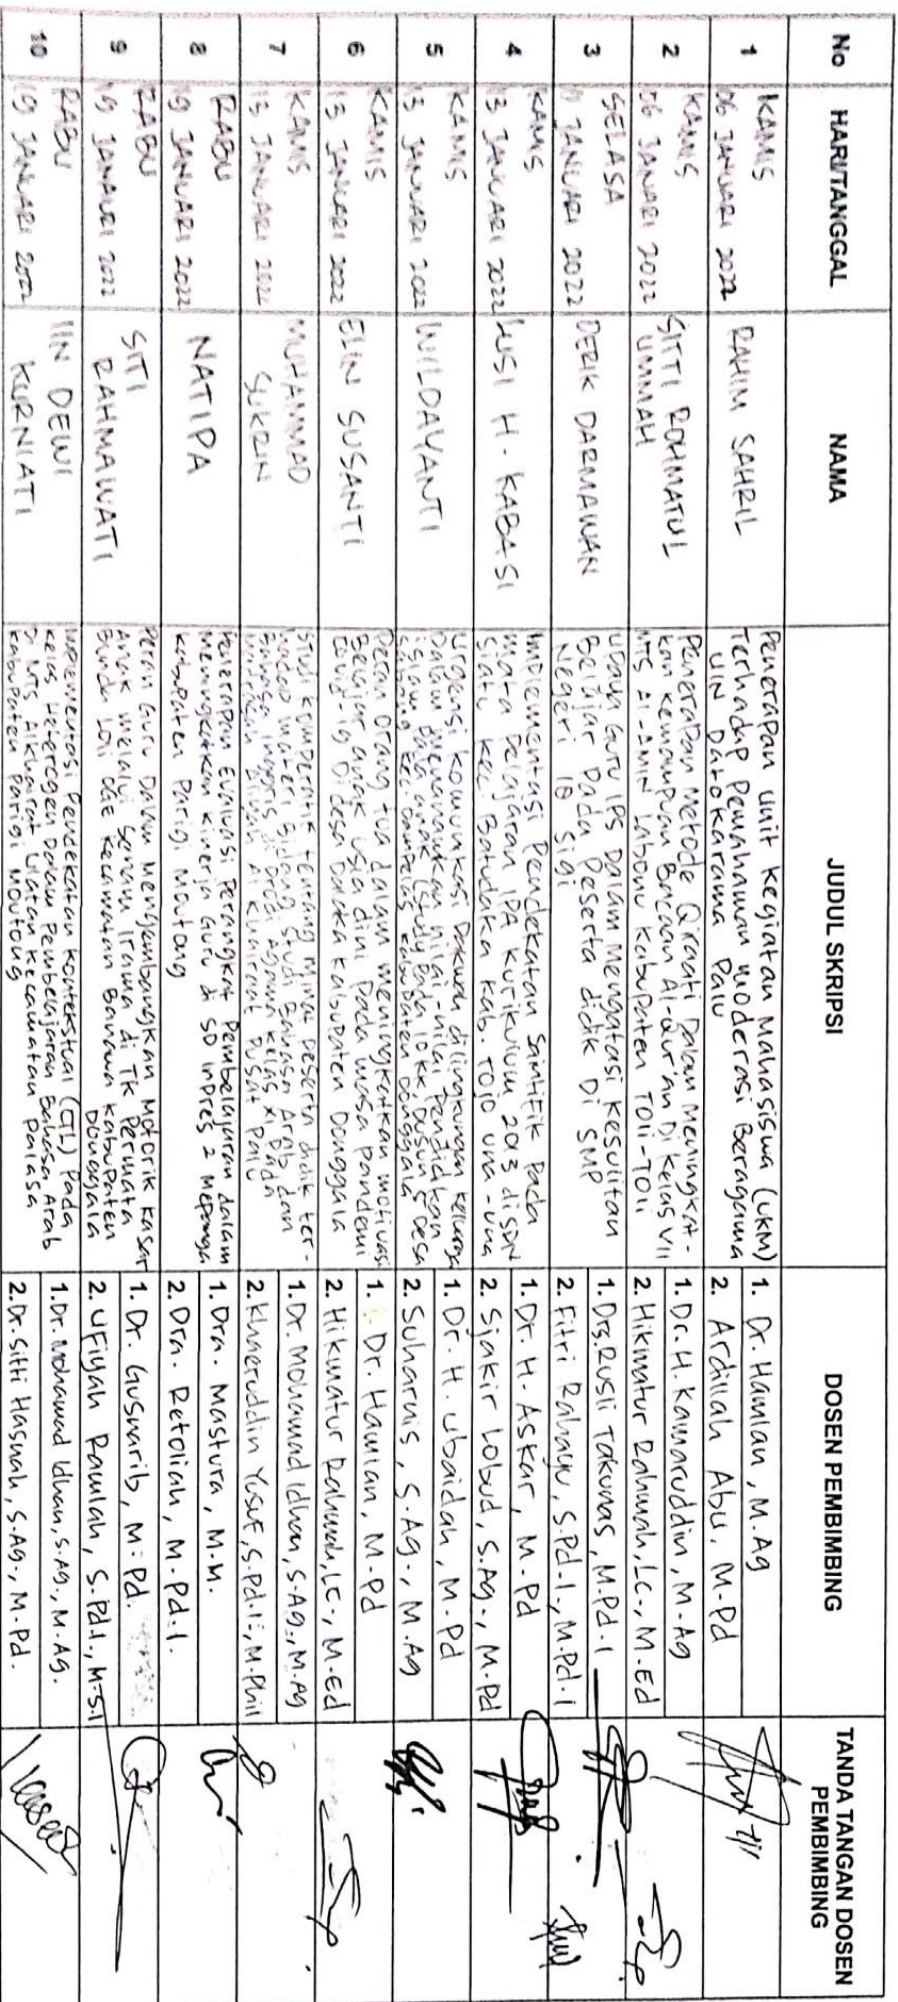 No HARI/TANGGAL NAMA JUDUL SKRIPSI DOSEN PEMBIMBING TANDA TANGAN DOSEN PEMBIMBING
1
KAMIS
06 JANUARI 2022
RAHIM SAHRIL
Penerapan Unit Kegiatan Mahasiswa (UKM)
Terhadap Pemahaman Moderasi Beragama
UIN Datokarama Palu
1. Dr. Hamlan, M.Ag
2. Ardillah Abu, M.Pd
2
KAMIS
06 JANARI 2022
SITTI ROHMATUL
UMMAH
Penerapan Metode Qiraati Dalam Meningkat-
kan Kemampuan Bacaan Al-Qur'an Di kelas VII
MTS Al-AMIN Labonu Kabupaten TOli-TOli
1. Dr. H. Kamaruddin, M.Ag
2. Hikmatur Rahmah, Lc., M.Ed
3
SELASA
JANUARI 2022
DERIK DARMAWAN
Upaya Guru IPS Dalam Mengatasi Kesulitan
Belajar Pada Peserta didik Di SMP
Negeri 10 Sigi
1. Drs. Rusli Takunas, M.Pd.I
2. Fitri Rahayu, S.Pd.I., M.Pd.I
4
KAMIS
13 JANUARI 2022
LUSI H. KABASI
Implementasi Pendekatan Saintifik Pada
Mata Pelajaran IPA Kurikulum 2013 di SDN
Siatu Kec. Batudaka Kab. Tojo Una-Una
1. Dr. H. Askar, M.Pd
2. Sjakir Lobud, S.Ag., M.Pd
5
KAMIS
13 JANUARI 2022
WILDAYANTI
Urgensi Komunikasi Dakwah dilingkungan keluarga
Dalam menanamkan nilai-nilai Pendidikan
Islam Pada anak (Study Pada 10 kk, Dusun 5 Desa
Sabang Kec. Dampelas Kabupaten Donggala
1. Dr. H. Ubaidah, M.Pd
2. Suharnis, S.Ag., M.Ag
6
KAMIS
13 JANUARI 2022
ELIN SUSANTI
Peran Orang tua dalam meningkatkan motivasi
Belajar anak usia dini Pada masa pandemi
Covid-19 Di desa Dalaka Kabupaten Donggala
1. Dr. Hamlan, M.Pd
2. Hikmatur Rahmah, Lc., M.Ed
7
KAMIS
13 JANUARI 2022
MUHAMMAD
SUKRIN
Studi Komperatik tentang Minat Peserta didik ter-
hadap Materi Bidang Studi Bahasa Arab dan
Bahasa Inggris di Prodi Agama kelas XI Pada
Aliyah Al khairaat Pusat Palu
1. Dr. Mohamad Idhan, S.Ag., M.Ag
2. Khaeruddin Yusuf, S.Pd.I., M.Phil
8
RABU
19 JANUARI 2022
NATIPA
Penerapan Evaluasi Perangkat Pembelajaran dalam
Meningkatkan Kinerja Guru di SD Inpres 2 Mepanga
Kabupaten Parigi Moutong
1. Dra. Mastura, M.M.
2. Dra. Retoliah, M.Pd.I.
9
RABU
19 JANAURI 2022
SITI
RAHMAWATI
Peran Guru Dalam Mengembangkan Motorik Kasar
Anak Melalui Senam Irama di TK Permata
Bunda Loli Oge Kecamatan Banawa Kabupaten
Donggala
1. Dr. Gusnarib, M.Pd.
2. Ufiyah Ramlah, S.Pd.I., M.S.I
10
RABU
19 JANUARI 2022
IIN DEWI
KURNIATI
Implementasi Pendekatan Kontekstual (CTL) Pada
Kelas Heterogen Dalam Pembelajaran Bahasa Arab
Di MTS Alkhairat Ulatan Kecamatan Palasa
Kabupaten Parigi Moutong
1. Dr. Mohamad Idhan, S.Ag., M.Ag.
2. Dr. Sitti Hasnah, S.Ag., M.Pd.